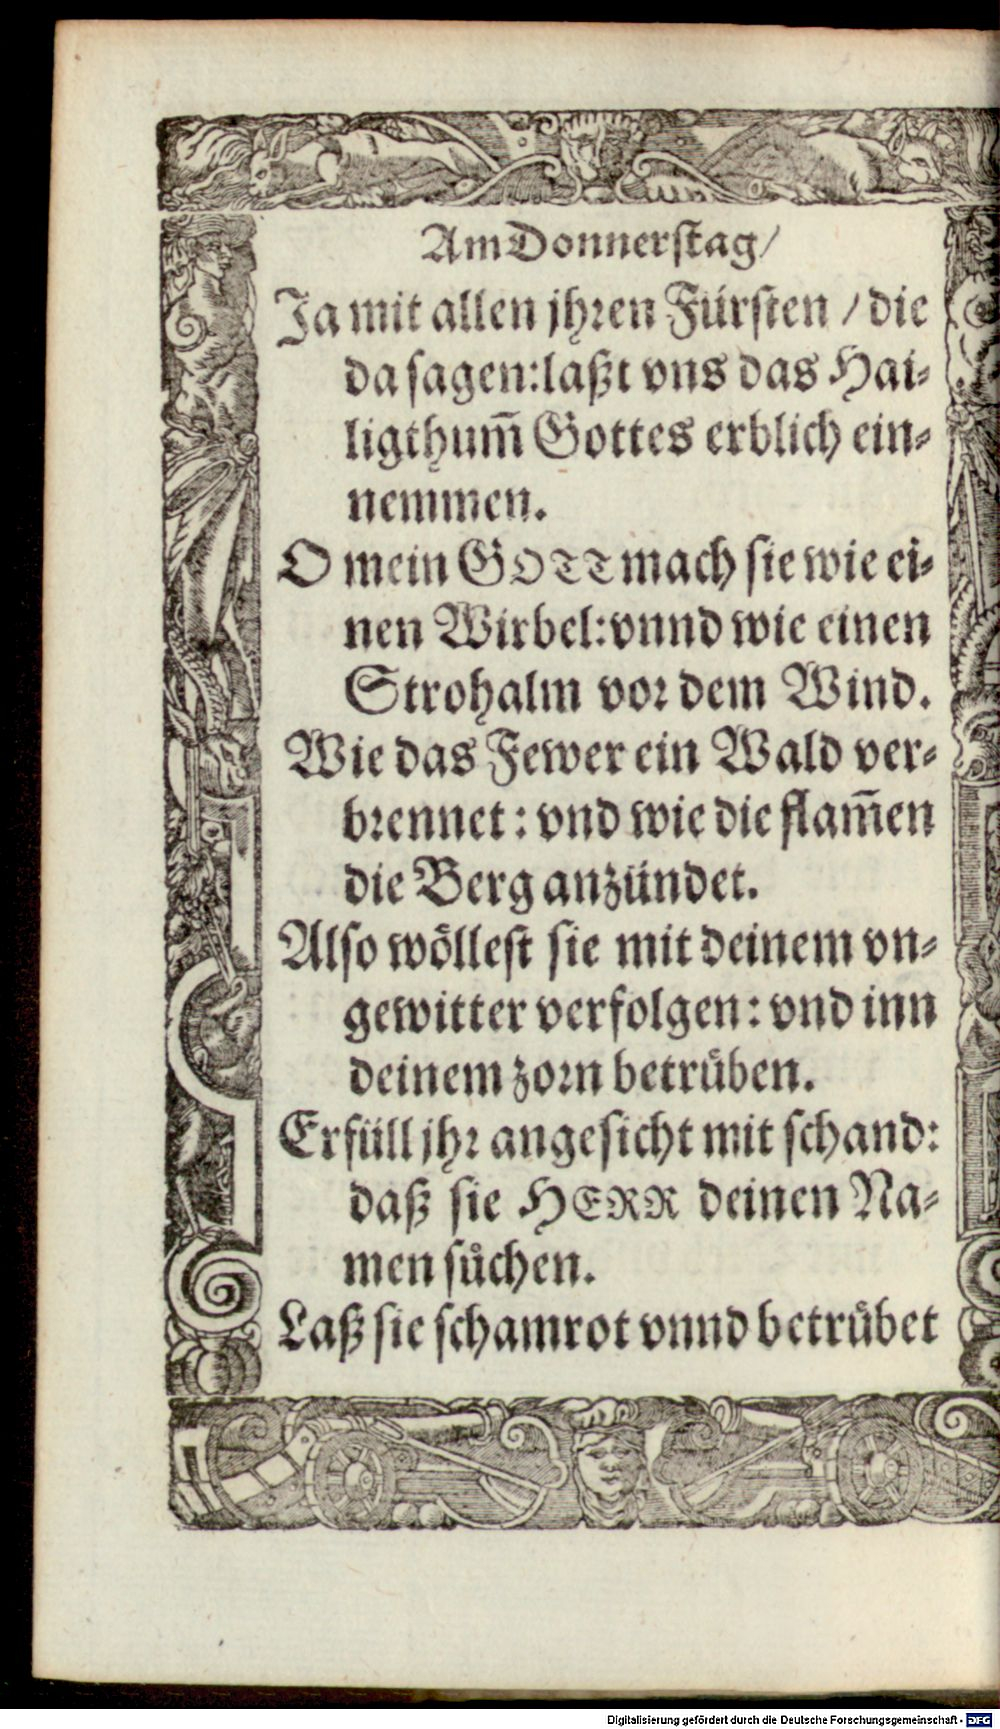 Am Donnerstag/
Ja mit allen jhren Fürsten / die
da sagen: laßt vns das Hai-
ligthum̄ Gottes erblich ein-
nemmen.
O mein GOTT mach sie wie ei-
nen Wirbel: vnnd wie einen
Strohalm vor dem Wind.
Wie das Fewer ein Wald ver-
brennet: vnd wie die flam̄en
die Berg anzündet.
Also wöllest sie mit deinem vn-
gewitter verfolgen: vnd inn
deinem zorn betrüben.
Erfüll jhr angesicht mit schand:
daß sie HERR deinen Na-
men sůchen.
Laß sie schamrot vnnd betrübet
Digitalisierung gefördert durch die Deutsche Forschungsgemeinschaft - DFG